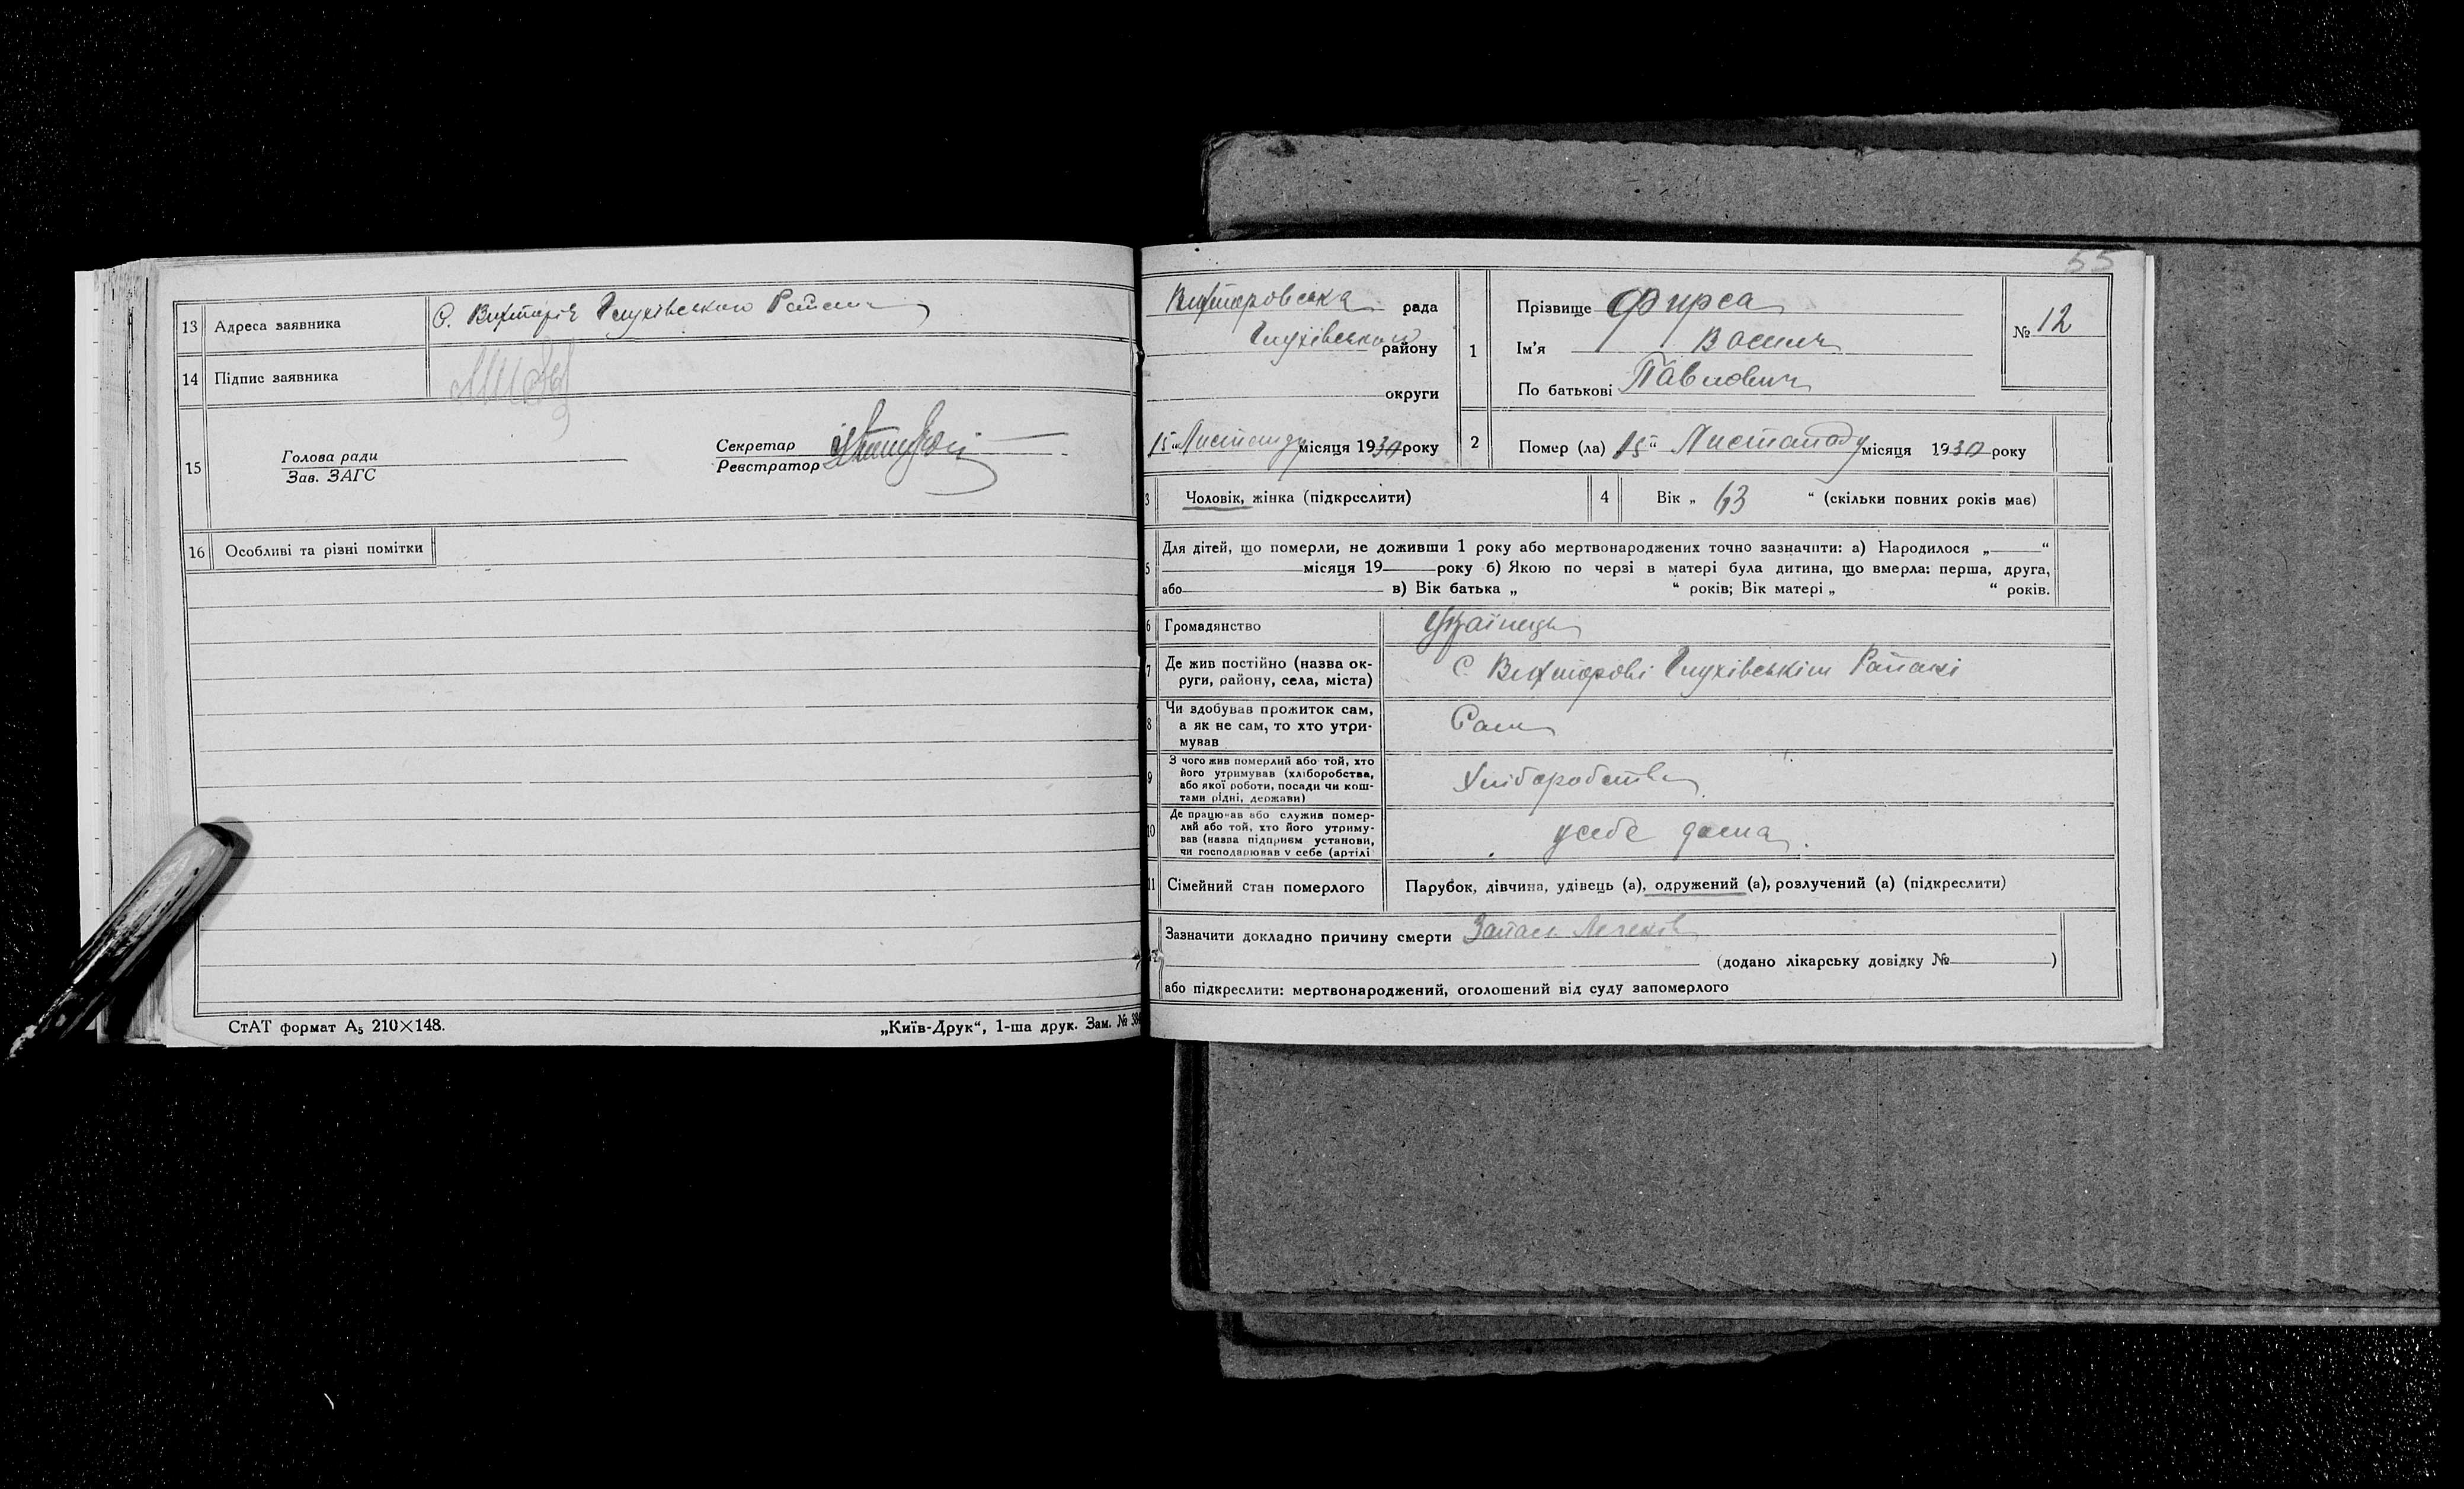 13 Адреса заявника С. Вихторів Глухівського Району
14 Підпис заявника
15 Голова ради
Зав. ЗАГС
Секретар
Реєстратор
16 Особливі та різні помітки
СтАТ формат А₅ 210×148.
„Київ-Друк“, 1-ша друк. Зам. №
55
Вихторовська рада
Глухівського району
округи
15 „ Листопаду місяця 1930 року
1 Прізвище Фирса
Ім'я Василь
По батькові Павлович
№ 12
2 Помер (ла) 15 „ Листопаду місяця 1930 року
3 Чоловік, жінка (підкреслити)
4 Вік „ 63 “ (скільки повних років має)
5 Для дітей, що померли, не доживши 1 року або мертвонароджених точно зазначити: а) Народилося „ “
місяця 19 року б) Якою по черзі в матері була дитина, що вмерла: перша, друга,
або в) Вік батька „ “ років; Вік матері „ “ років.
6 Громадянство Українець
7 Де жив постійно (назва ок-
руги, району, села, міста) С Вихторові Глухівськім Районі
8 Чи здобував прожиток сам,
а як не сам, то хто утри-
мував Сам
9 З чого жив померлий або той, хто
його утримував (хліборобства,
або якої роботи, посади чи кош-
тами рідні, держави) Хліборобства
10 Де працював або служив помер-
лий або той, хто його утриму-
вав (назва підприєм установи,
чи господарював у себе (артілі усебе дома
11 Сімейний стан померлого Парубок, дівчина, удівець (а), одружений (а), розлучений (а) (підкреслити)
12 Зазначити докладно причину смерти Запал Легенів
(додано лікарську довідку № )
або підкреслити: мертвонароджений, оголошений від суду запомерлого